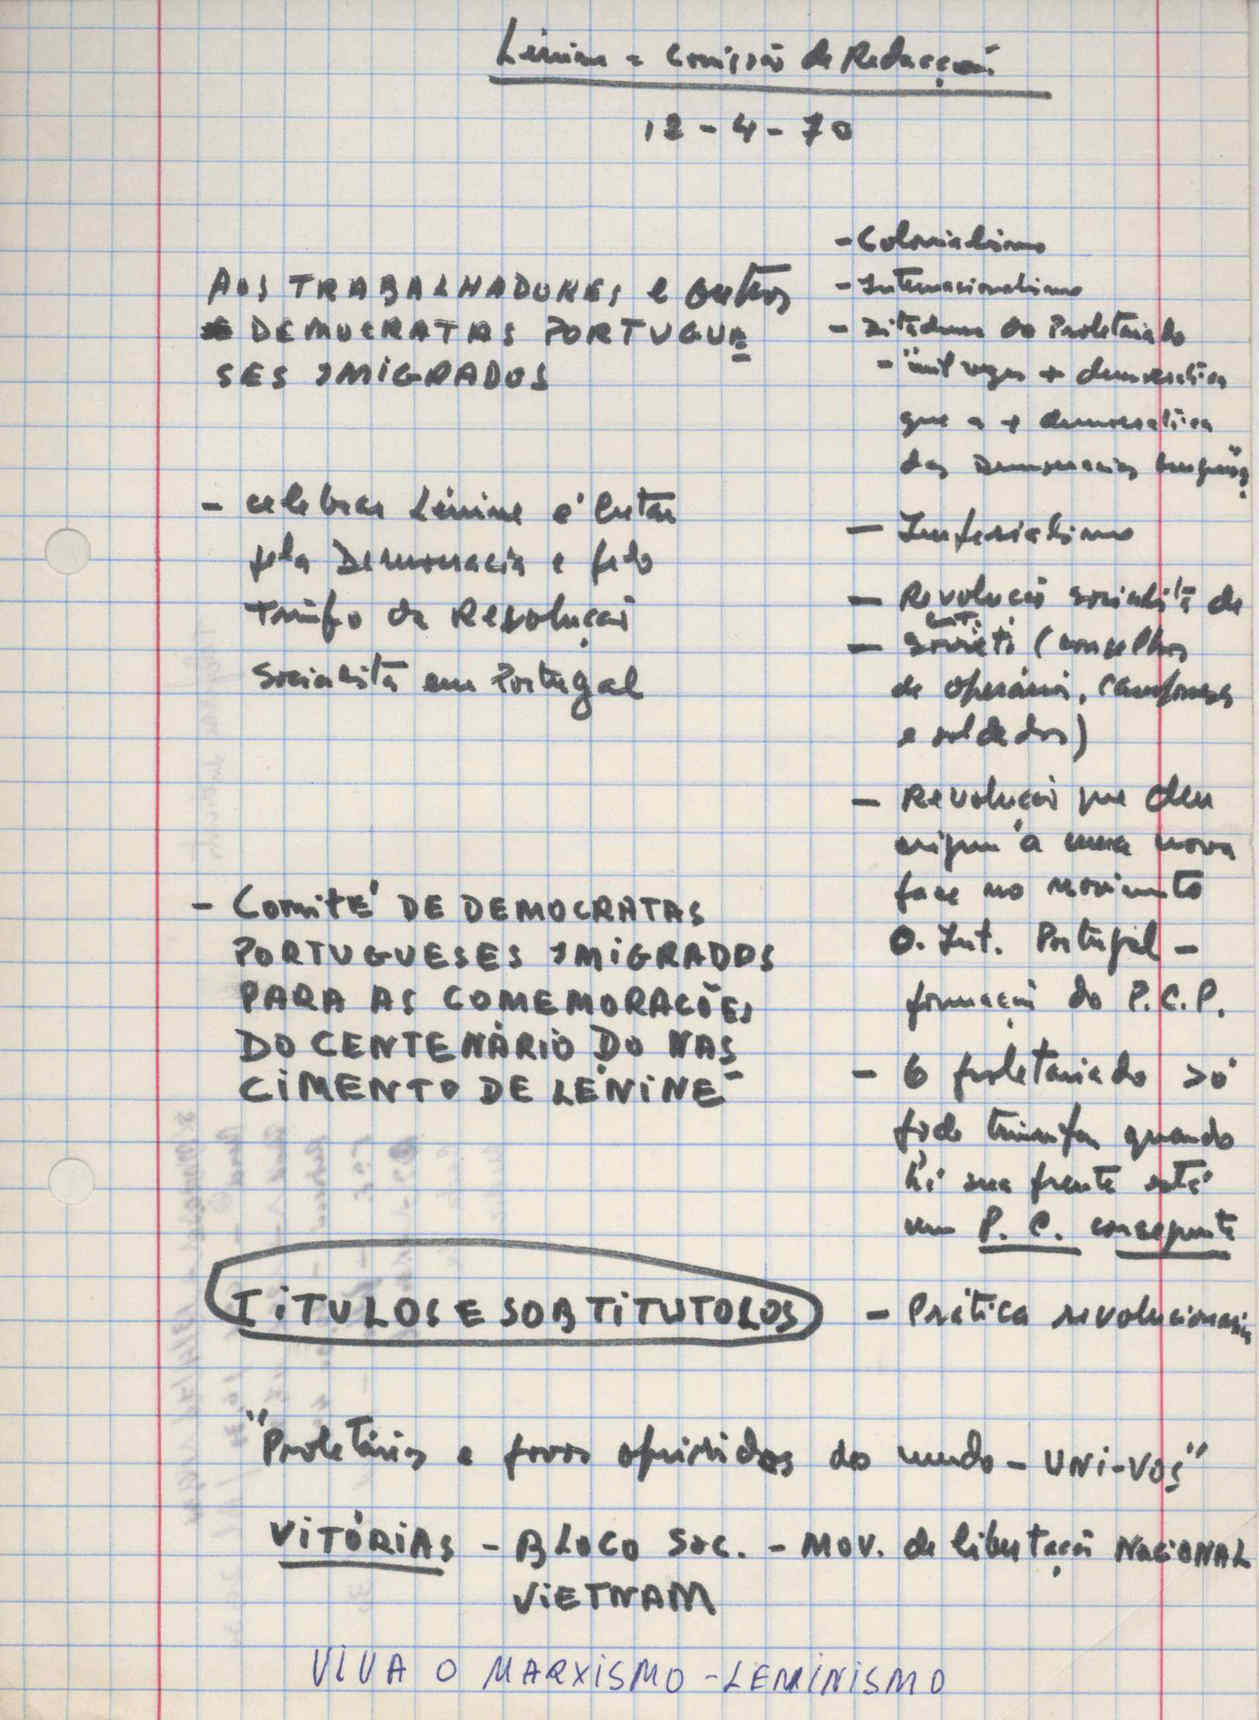 Lénine - Comissão de Redacção
12-4-70
AOS TRABALHADORES e outros
DEMOCRATAS PORTUGUE
SES IMIGRADOS
- celebrar Lénine é lutar
pela Democracia e pelo
Triunfo da Revolução
Socialista em Portugal
- Comité DE DEMOCRATAS
PORTUGUESES IMIGRADOS
PARA AS COMEMORAÇÕES
DO CENTENÁRIO DO NAS
CIMENTO DE LÉNINE
TITULOS E SOBTITUTOLOS
- Colonialismo
- Internacionalismo
- Ditadura do Proletariado
- "mil vezes + democrática
que a + democrática
das Democracias burguesas"
- Imperialismo
- Revolução socialista de
out.
- Soviets (conselhos
de operários, camponeses
e soldados)
- Revolução que deu
origem à uma nova
fase no movimento
O. Int. Portugal -
formação do P.C.P.
- O proletariado só
pode triunfar quando
há sua frente está
um P. C. consequente
- Prática revolucionaria
"Proletários e povos oprimidos do mundo - UNI-VOS"
VITÓRIAS - BLOCO SOC. - MOV. de libertação NACIONAL
VIETNAM
VIVA O MARXISMO-LENINISMO